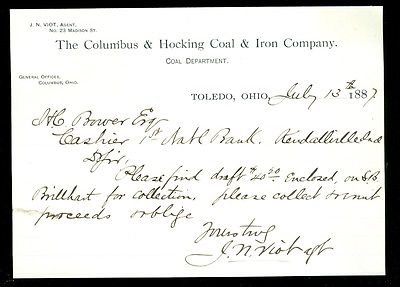 J. N. VIOT, AGENT,
No. 23 MADISON ST.
The Columbus & Hocking Coal & Iron Company.
COAL DEPARTMENT.
GENERAL OFFICES,
COLUMBUS, OHIO.
TOLEDO, OHIO, July 13th 1887
H C Bower Esq
Cashier 1st Natl Bank. Kendallville Ind
D Sir,
Please find draft $40.20 Enclosed, on S B
Brillhart for collection, please collect & remit
proceeds & oblige
Yours truly
J. N. Viot agt